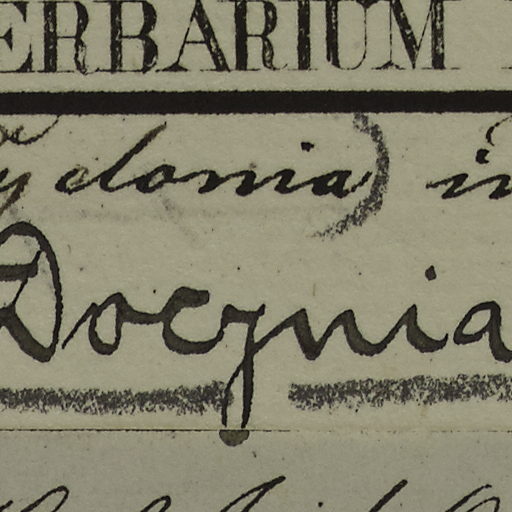 ERBARIUM
ydonia) in
Docynia